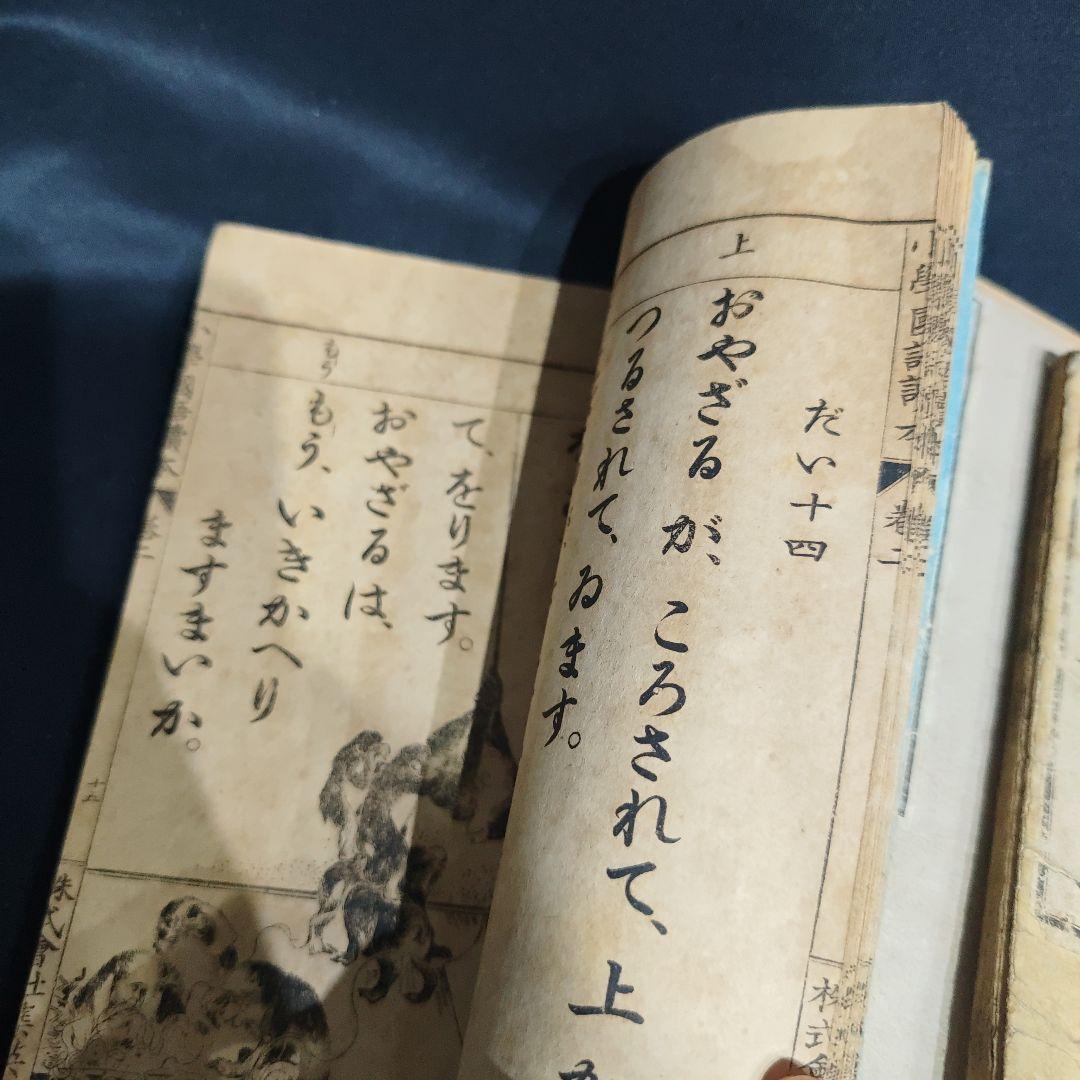 小學國語讀本 卷二
だい十四
上
おやざる が、ころされて、上
つるされて、ゐます。
株式會
て、をります。
おやざるは、
もう
もう、いきかへり
ますまいか。
卷二
十五
株式會社